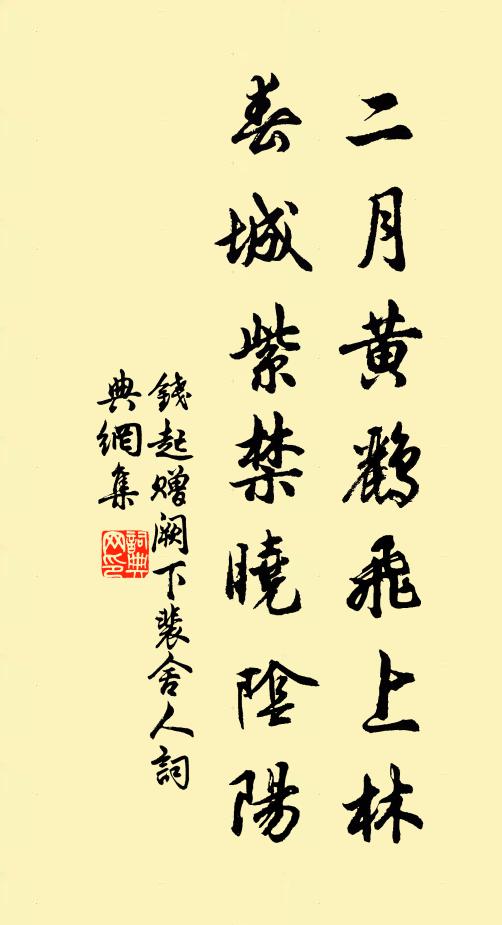 二月黄鸝飛上林
春城紫禁曉陰陽
錢起贈阙下裴舍人詞
典網集
詞典
网印